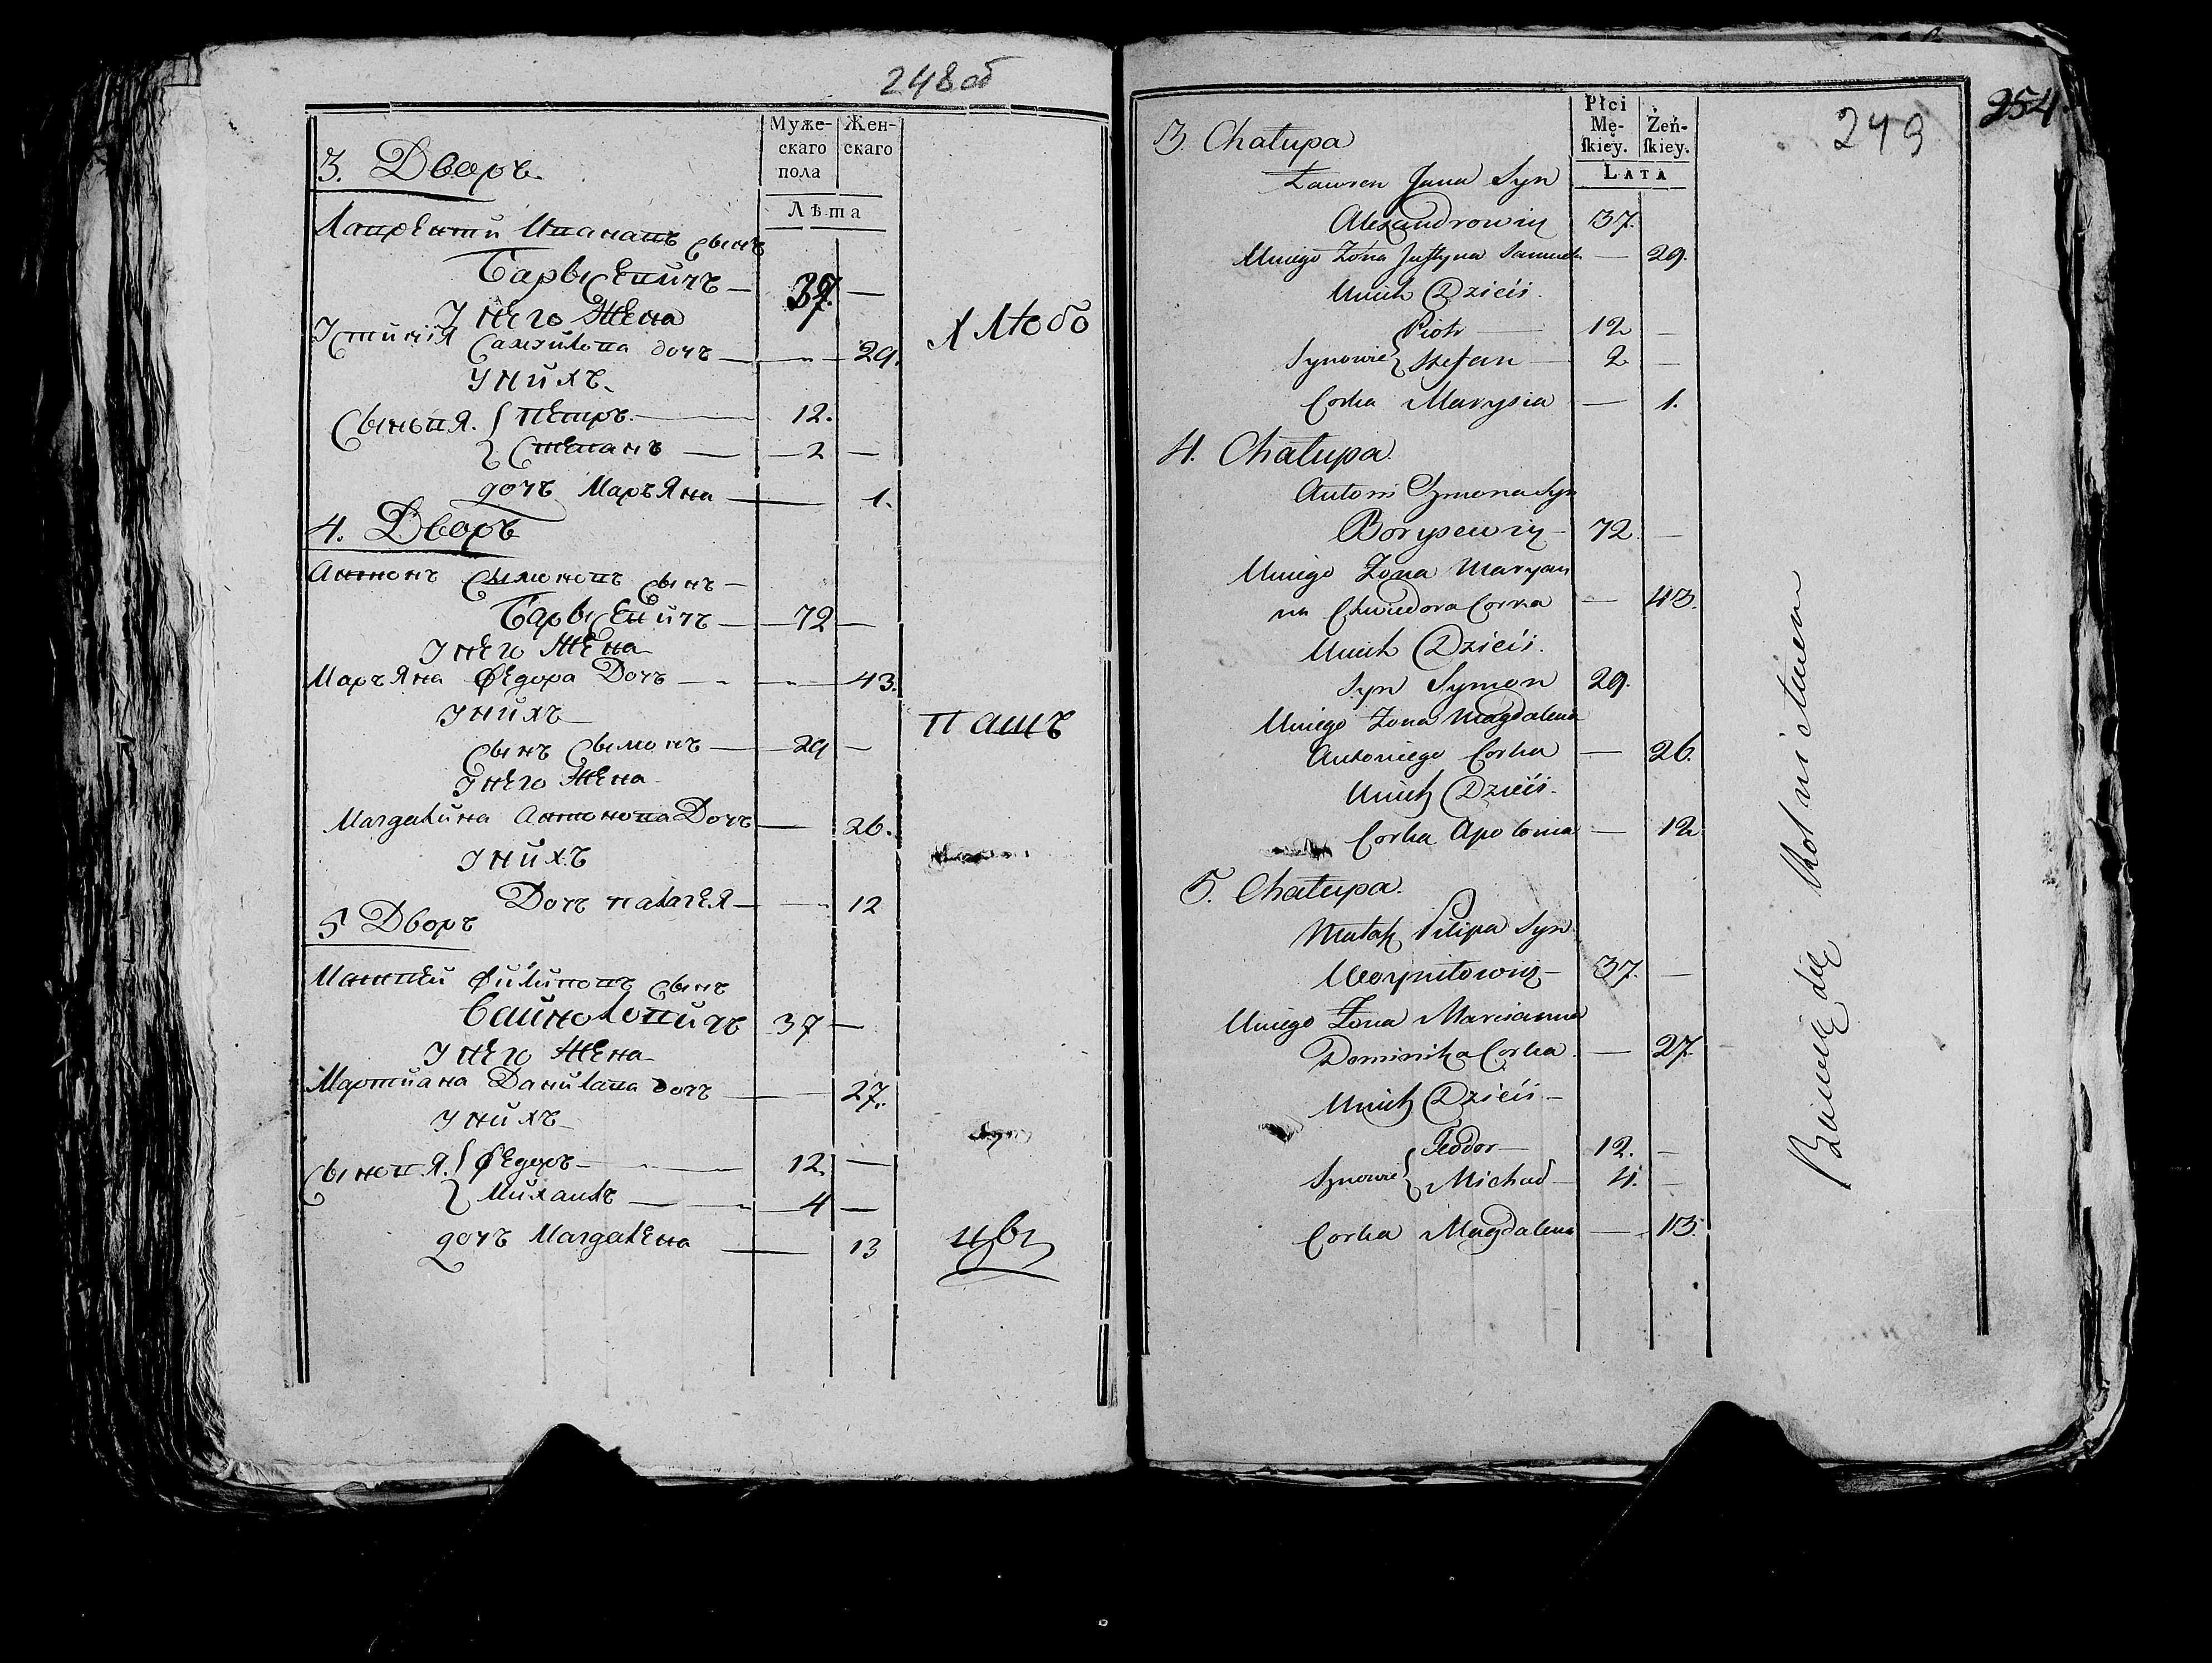 248об
Муже- Жен-
скаго скаго
пола
Лѣта
3. Дворъ
Лаврентий Ивановъ сынъ
Барысевичъ — 37. —
У него Жена
Устиния Самуйлова дочъ — 29.
У нихъ
Сыновя. { Петръ. — 12.
{ Степанъ — 2 —
дочъ Маръяна — 1.
4. Дворъ
Антонъ Сымоновъ Сынъ —
Барысевичъ — 72 —
У него Жена
Маръяна Федора Дочъ — 43.
У нихъ
Сынъ Сымонъ — 29 —
У него Жена
Магдалина Антонова Дочъ — 26.
У нихъ
Дочъ Палагея — 12
5 Дворъ
Матвей Филиповъ сынъ
Войноловичъ 37 —
У него Жена
Мартиана Данилова дочъ — 27.
У нихъ
Сыновя. { Федоръ — 12. —
{ Михаилъ — 4 —
дочъ Магдалена — 13
Хлѣбо
Пашъ
цы
254
249
Płci
Mę- Żeń-
skiey. skiey.
LATA
3. Chałupa
Ławren Jana Syn
Alexandrowicz 37.
U niego Żona Justyna Samuela — 29.
U nich Dzieci.
Synowie { Piotr — 12 —
{ Stefan — 2 —
Corka Marysia — 1.
4. Chałupa
Antoni Szymona Syn
Borysewicz — 72. —
U niego Żona Maryan
na Chwiedora Corka — 43.
U nich Dzieci.
Syn Symon 29.
U niego Żona Magdalena
Antoniego Corka — 26.
U nich Dzieci.
Corka Apolonia — 12
5. Chałupa.
Filipa Syn
37. —
U niego Żona Marianna
Dominika Corka. — 27.
U nich Dzieci —
Synowie { Teodor — 12. —
{ Michał — 4. —
Corka Magdalena — 13.